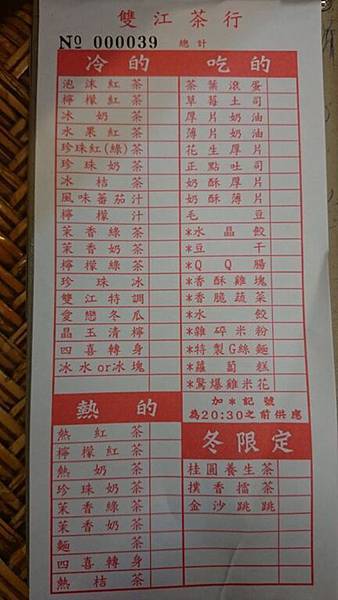 雙江茶行
№ 000039 總計
冷的
泡沫紅茶
檸檬紅茶
冰奶茶
水果紅茶
珍珠紅(綠)茶
珍珠奶茶
冰桔茶
風味蕃茄汁
檸檬汁
茉香綠茶
茉香奶茶
檸檬綠茶
珍珠冰
雙江特調
愛戀冬瓜
晶玉清檸
四喜轉身
冰水or冰塊
熱的
熱紅茶
檸檬紅茶
熱奶茶
珍珠奶茶
茉香綠茶
茉香奶茶
麵茶
四喜轉身
熱桔茶
吃的
茶葉滾蛋
草莓土司
厚片奶油
薄片奶油
花生厚片
正點吐司
奶酥厚片
奶酥薄片
毛豆
*水晶餃
*豆干
*QQ腸
*香酥雞塊
*香脆蔬菜
*水餃
*雜碎米粉
*特製G絲麵
*蘿蔔糕
*驚爆雞米花
加*記號
為20:30之前供應
冬限定
桂圓養生茶
撲香擂茶
金沙跳跳